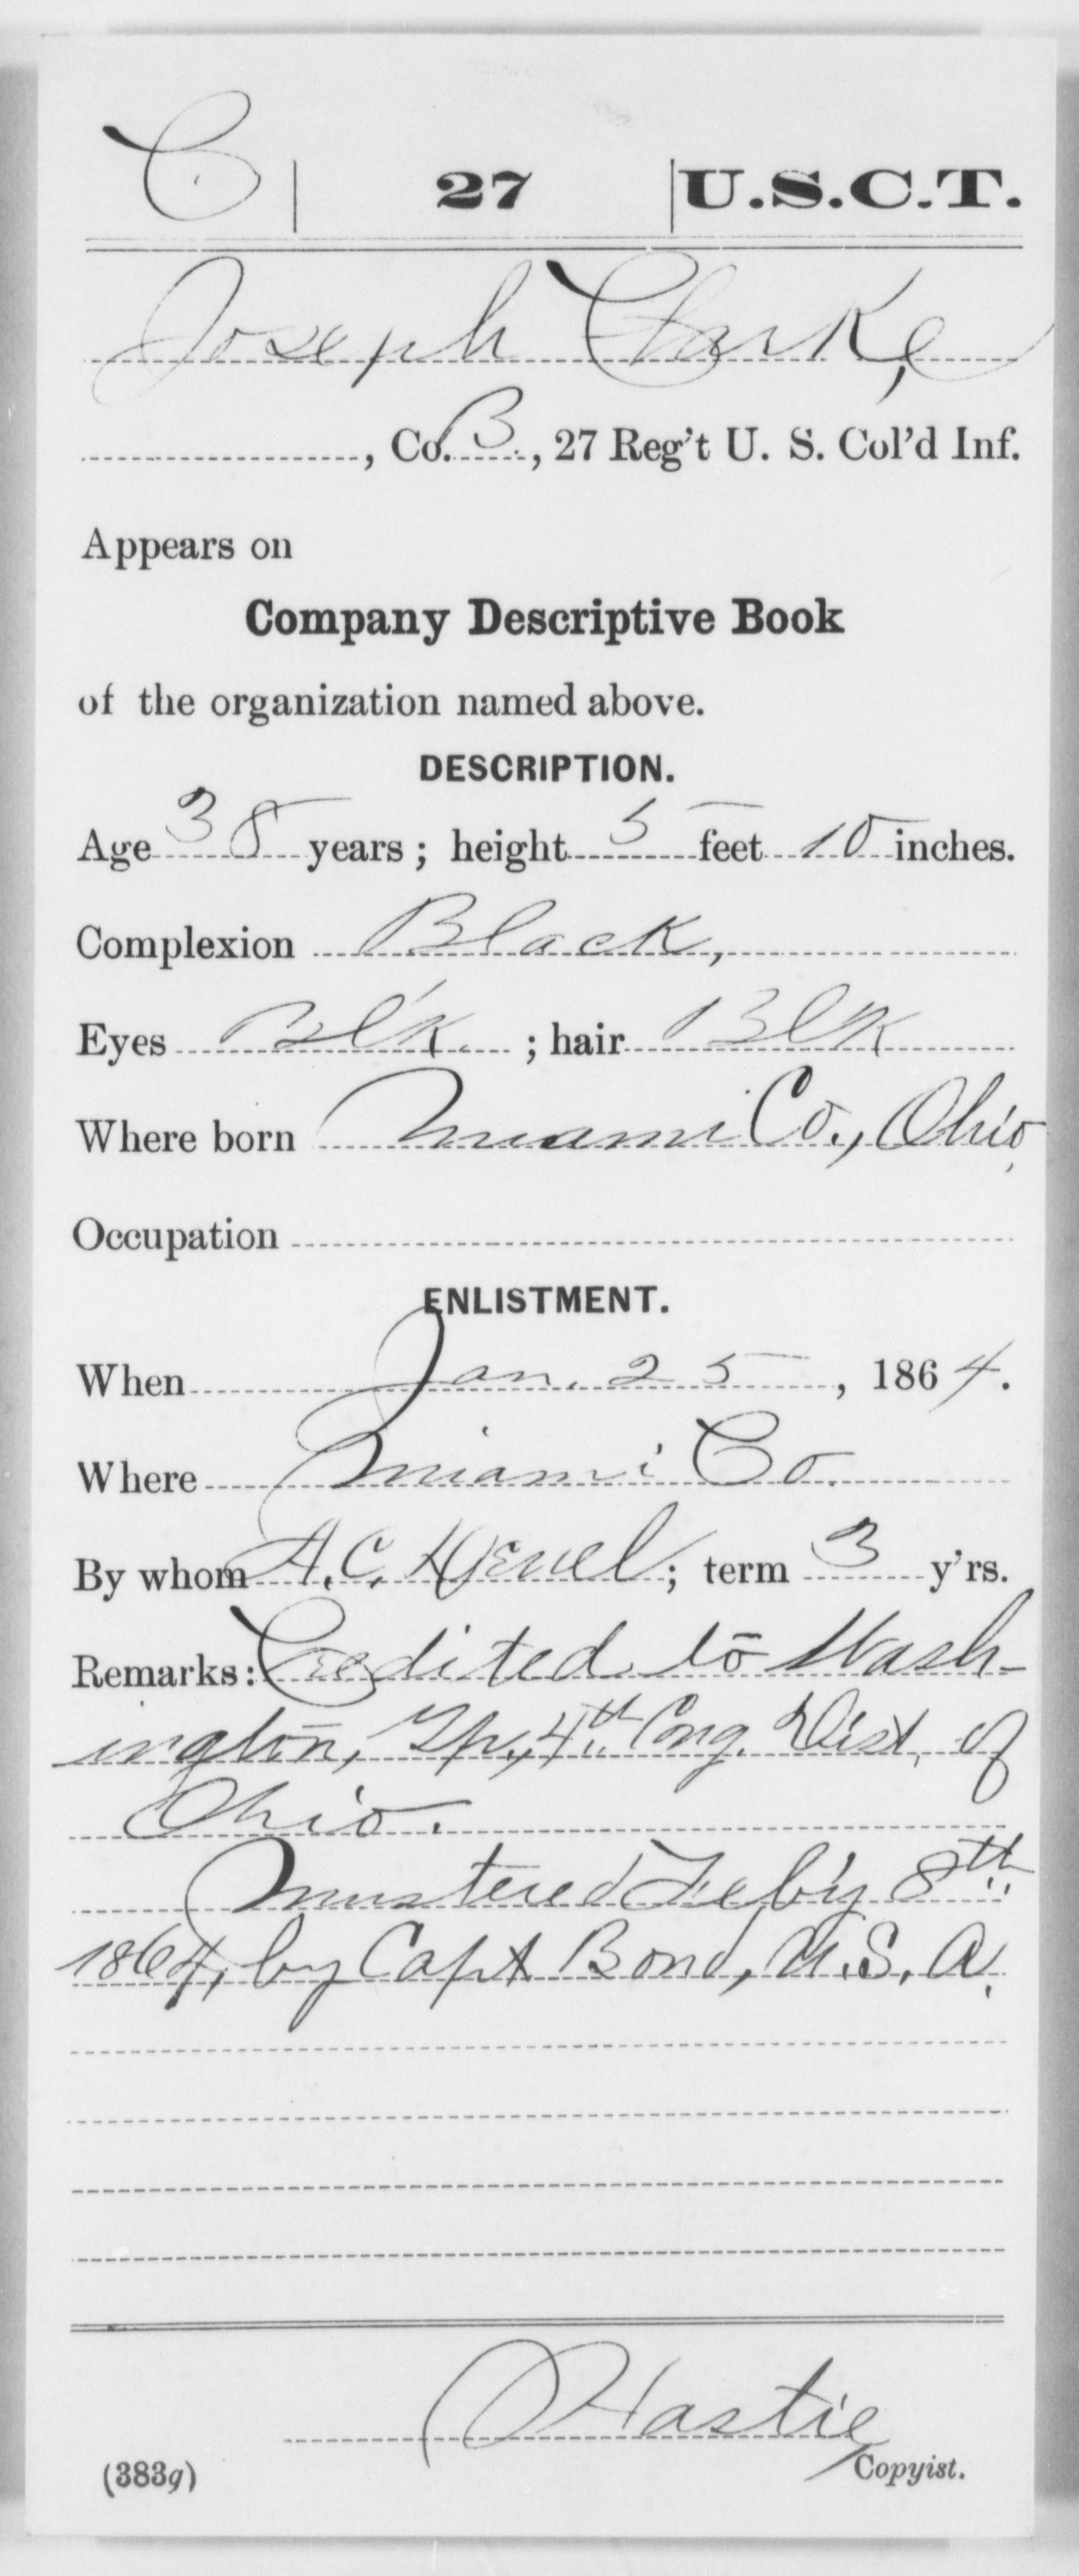 C | 27 | U.S.C.T.
Joseph Clarke,
, Co. B., 27 Reg't U. S. Col'd Inf.
Appears on
Company Descriptive Book
of the organization named above.
DESCRIPTION.
Age 38 years; height 5 feet 10 inches.
Complexion Black,
Eyes Bl'k. ; hair Blk
Where born Miami Co., Ohio,
Occupation
ENLISTMENT.
When Jan. 25, 1864.
Where Miami Co.
By whom A. C. ; term 3 y'rs.
Remarks: Credited to Wash-
ington, Tp., 4th Cong. Dist. of
Ohio.
Mustered Feb'y 8th
1864, by Capt Bond, U.S.A.
Hastie
(383g) Copyist.